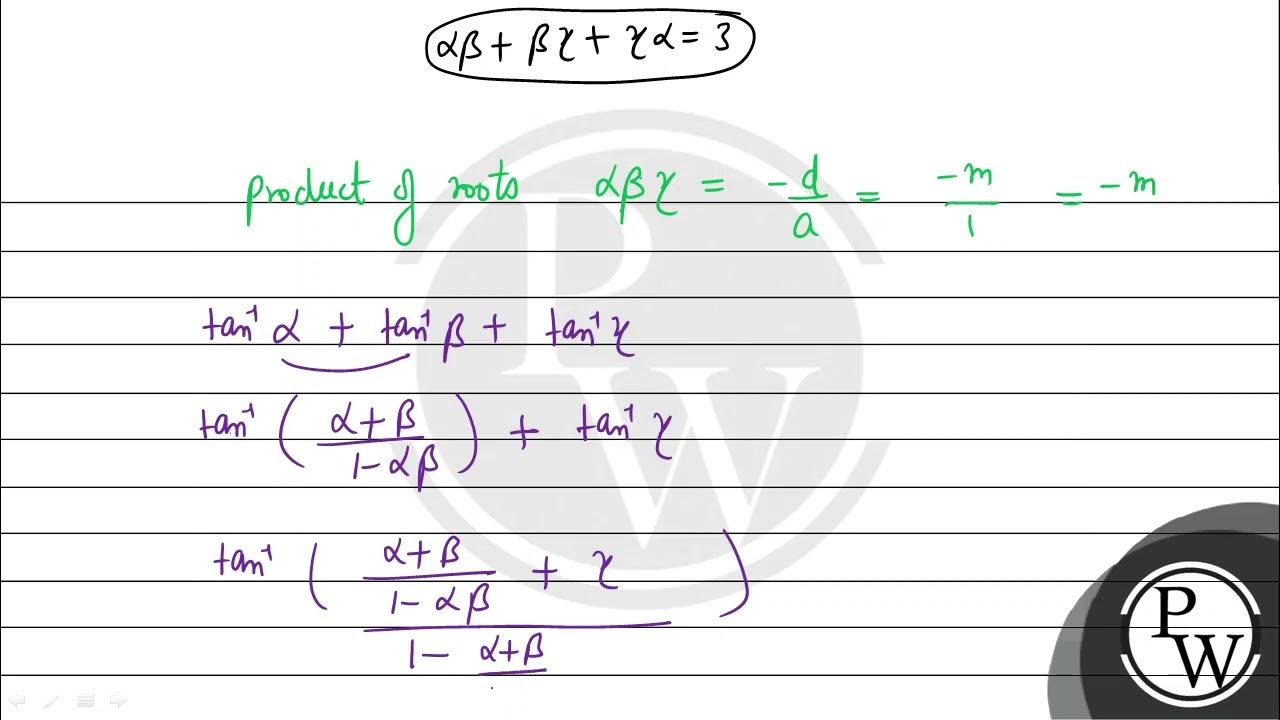 αβ + βγ + γα = 3
product of roots αβγ = -d/a = -m/1 = -m
tan⁻¹ α + tan⁻¹ β + tan⁻¹ γ
tan⁻¹ ( (α+β)/(1-αβ) ) + tan⁻¹ γ
tan⁻¹ (
α+β
1-αβ
+ γ
)
1 - α+β
PW
PW